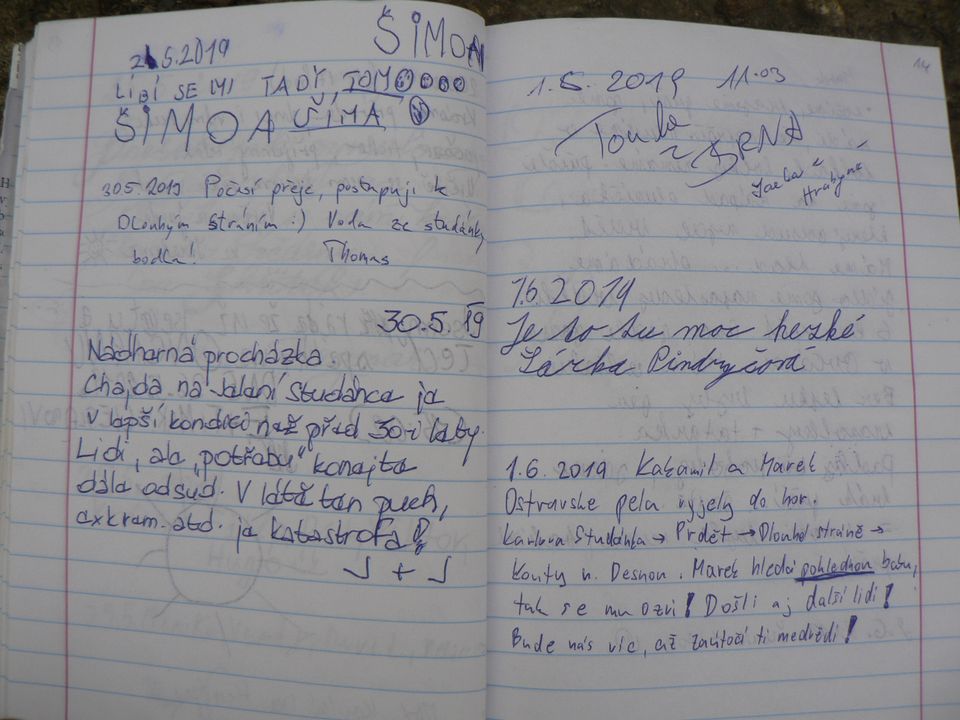 ŠIMON
2.5.2019
LÍBÍ SE MI TADY, TOM
ŠIMOA ŠIMA
30.5.2019 Počasí přeje, postupuji k
Dlouhým Stráním :) Voda ze studánky
bodla! Thomas
30.5.19
Nádherná procházka
Chajda na Jelení Studánce je
v lepší kondici než před 30-i lety.
Lidi, ale "potřebu" konejte
dále odsud. V létě ten puch,
exkrem. atd. je katastrofa!
J + J
114
1.6.2019 11:03
Toula
z BRNA
Hrabyně
1.6.2019
Je to tu moc hezké
Šárka Pindryčová
1.6.2019 Kakamil a Marek
Ostravske pela vyjely do hor.
Karlova Studánka → Praděd → Dlouhé stráně →
Kouty n. Desnou. Marek hledá pohlednou babu,
tak se mu ozvi! Došli aj další lidi!
Bude nás víc, až zaútočí ti medvědi!